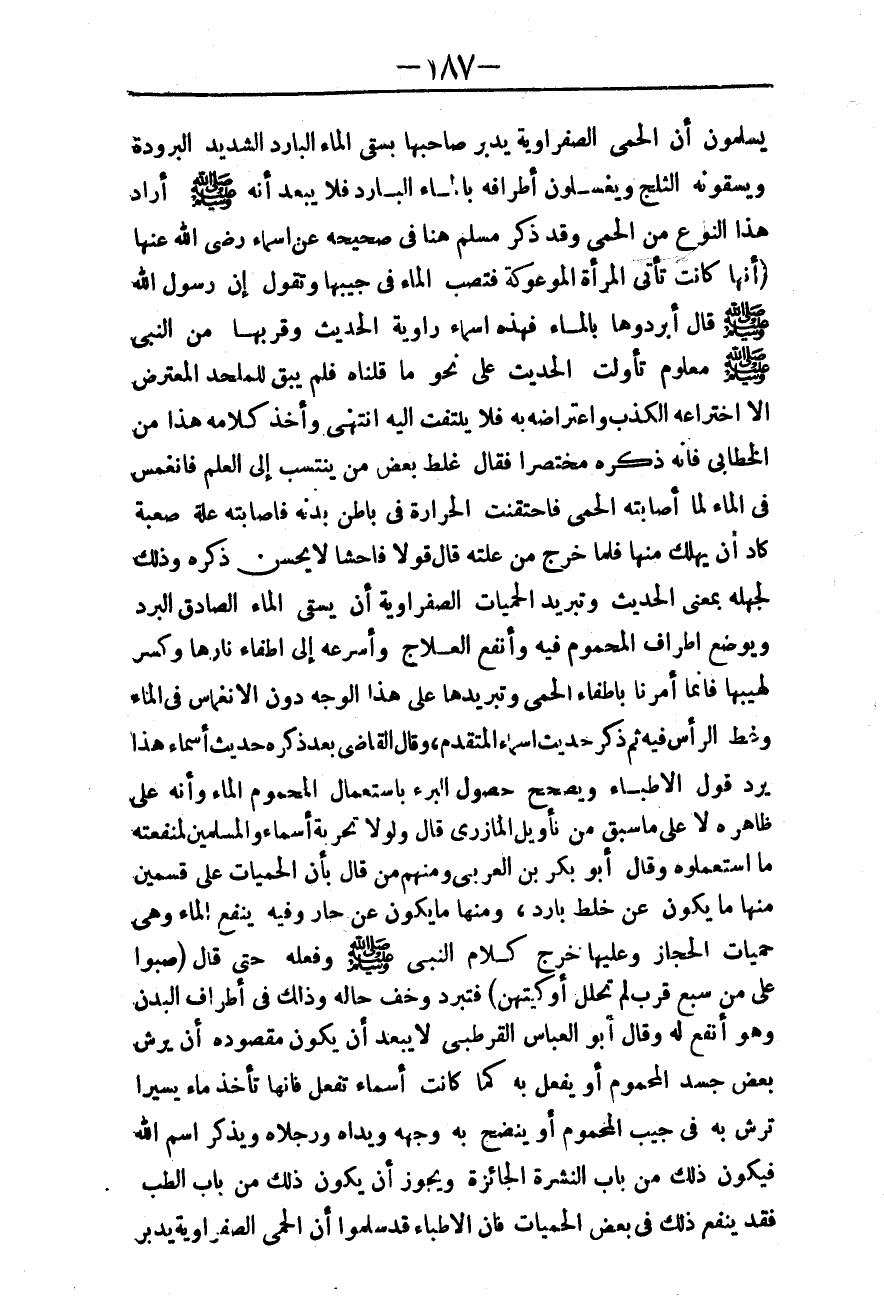 -١٨٧-
يسلمون أن الحمى الصفراوية يدبر صاحبها بسقى الماء البارد الشديد البرودة
ويسقونه الثلج ويغسلون أطرافه بالماء البارد فلا يبعد أنه ﷺ أراد
هذا النوع من الحمى وقد ذكر مسلم هنا فى صحيحه عن اسماء رضى الله عنها
(أنها كانت تأتى المرأة الموعوكة فتصب الماء فى جيبها وتقول إن رسول الله
ﷺ قال أبردوها بالماء فهذه اسماء راوية الحديث وقربها من النبى
ﷺ معلوم تأولت الحديث على نحو ما قلناه فلم يبق للملحد المعترض
الا اختراعه الكذب واعتراضه به فلا يلتفت اليه انتهى وأخذ كلامه هذا من
الخطابى فانه ذكره مختصرا فقال غلط بعض من ينتسب إلى العلم فانغمس
فى الماء لما أصابته الحمى فاحتقنت الحرارة فى باطن بدنه فاصابته علة صعبة
كاد أن يهلك منها فلما خرج من علته قال قولا فاحشا لا يحسن ذكره وذلك
لجهله بمعنى الحديث وتبريد الحميات الصفراوية أن يسقى الماء الصادق البرد
ويوضع اطراف المحموم فيه وأنفع العلاج وأسرعه إلى اطفاء نارها وكسر
لهيبها فانما أمرنا باطفاء الحمى وتبريدها على هذا الوجه دون الانغماس فى الماء
وغط الرأس فيه ثم ذكر حديث اسماء المتقدم، وقال القاضى بعد ذكره حديث أسماء هذا
يرد قول الاطباء ويصحح حصول البرء باستعمال المحموم الماء وأنه على
ظاهره لا على ماسبق من تأويل المازرى قال ولولا تجربة أسماء والمسلمين لمنفعته
ما استعملوه وقال أبو بكر بن العربى ومنهم من قال بأن الحميات على قسمين
منها ما يكون عن خلط بارد، ومنها مايكون عن حار وفيه ينفع الماء وهى
حميات الحجاز وعليها خرج كلام النبى ﷺ وفعله حتى قال (صبوا
على من سبع قرب لم تحلل أوكيتهن) فتبرد وخف حاله وذالك فى أطراف البدن
وهو أنفع له وقال أبو العباس القرطبى لايبعد أن يكون مقصوده أن يرش
بعض جسد المحموم أو يفعل به كما كانت أسماء تفعل فانها تأخذ ماء يسيرا
ترش به فى جيب المحموم أو ينضح به وجهه ويداه ورجلاه ويذكر اسم الله
فيكون ذلك من باب النشرة الجائزة ويجوز أن يكون ذلك من باب الطب
فقد ينفع ذلك فى بعض الحميات فان الاطباء قد سلموا أن الحمى الصفراوية يدبر